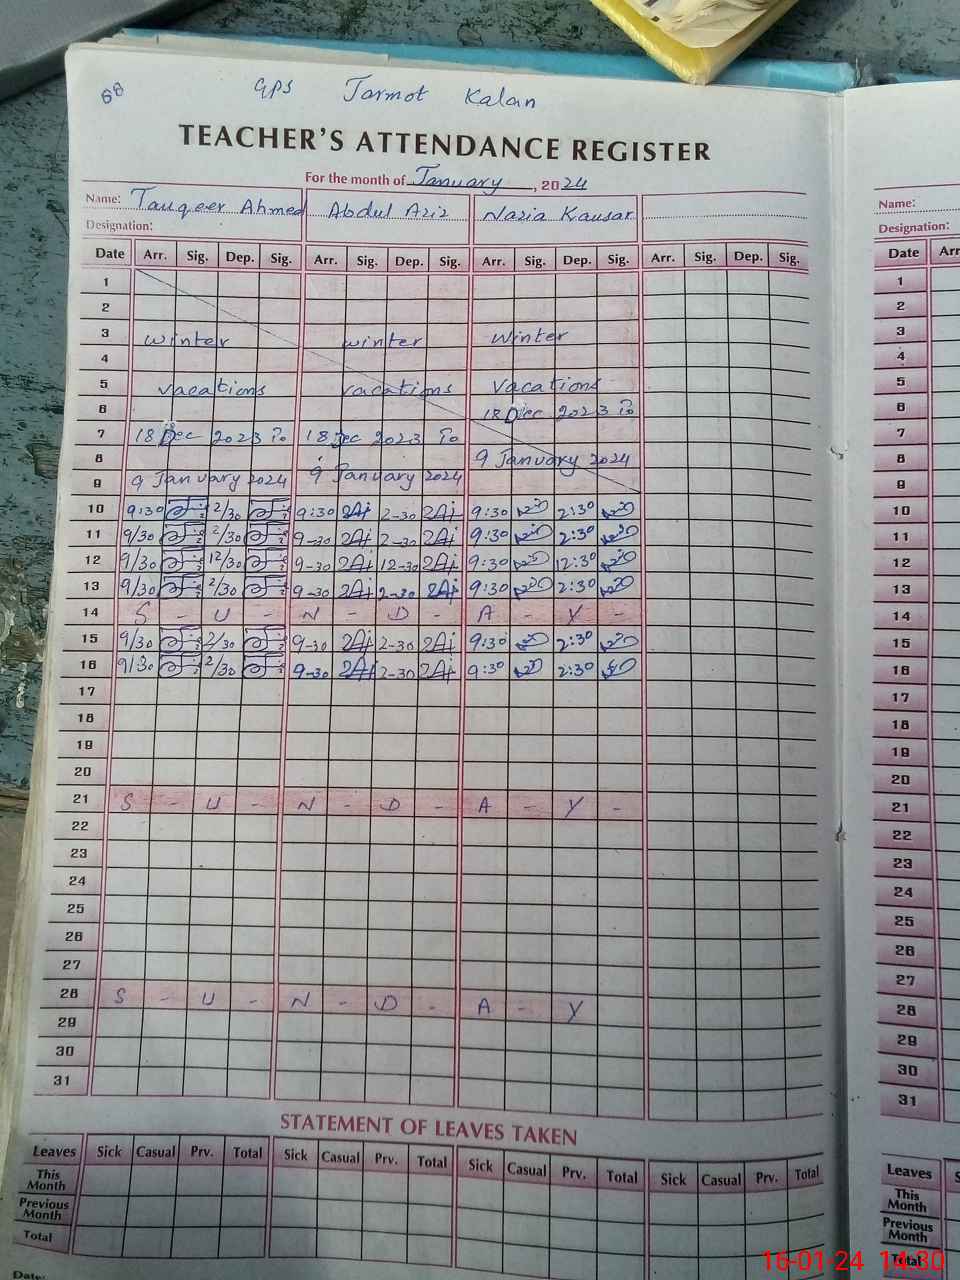 68
GPS Tarmot Kalan
TEACHER'S ATTENDANCE REGISTER
For the month of January, 2024
Name: Tauqeer Ahmed Abdul Aziz Nazia Kausar
Designation:
Date Arr. Sig. Dep. Sig. Arr. Sig. Dep. Sig. Arr. Sig. Dep. Sig. Arr. Sig. Dep. Sig.
1
2
3 winter winter Winter
4
5 vacations vacations Vacations
6 18 Dec 2023 To
7 18 Dec 2023 To 18 Dec 2023 To
8 9 January 2024
9 9 January 2024 9 January 2024
10 9:30 2/30 9:30 2-30 9:30 2:30
11 9/30 2/30 9-30 2-30 9:30 2:30
12 9/30 12/30 9-30 12-30 9:30 12:30
13 9/30 2/30 9-30 2-30 9:30 2:30
14 S - U - N - D - A - Y -
15 9/30 2/30 9-30 2-30 9:30 2:30
16 9/30 2/30 9-30 2-30 9:30 2:30
17
18
19
20
21 S - U - N - D - A - Y -
22
23
24
25
26
27
28 S - U - N - D - A - Y
29
30
31
STATEMENT OF LEAVES TAKEN
Leaves Sick Casual Prv. Total Sick Casual Prv. Total Sick Casual Prv. Total Sick Casual Prv. Total
This
Month
Previous
Month
Total
Date:
Name:
Designation:
Date Arr
1
2
3
4
5
6
7
8
9
10
11
12
13
14
15
16
17
18
19
20
21
22
23
24
25
26
27
28
29
30
31
Leaves S
This
Month
Previous
Month
Total
16-01-24 14:30